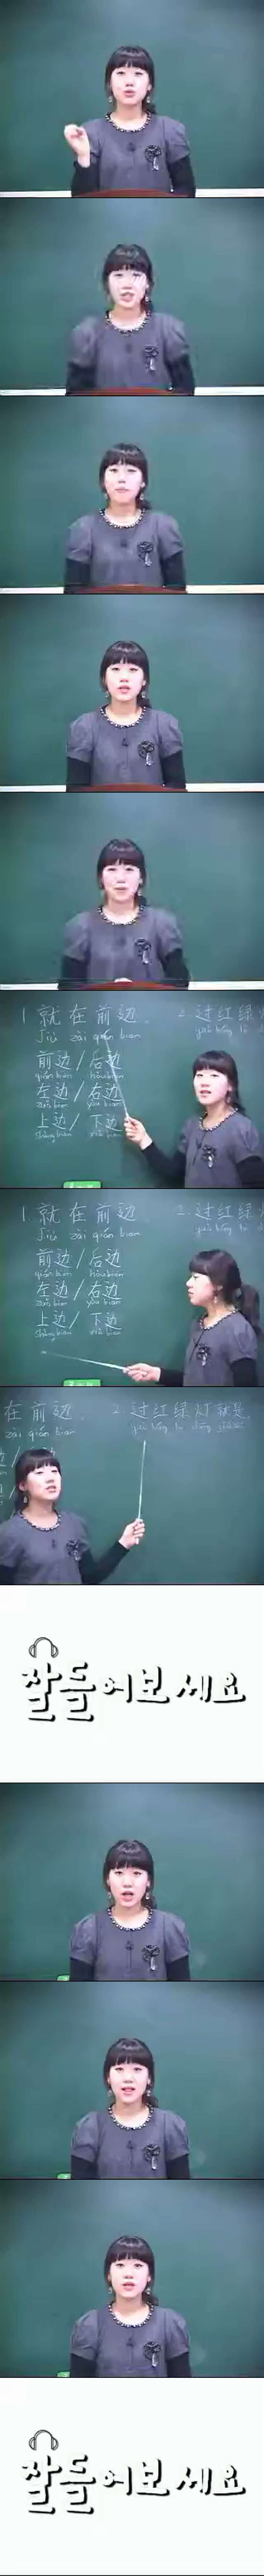 1. 就在前边.
Jiù zài qián bian
2. 过红绿灯
前边/后边
qián bian hòu bian
左边/右边
zuǒ bian yòu bian
上边/下边
shàng bian xià bian
1. 就在前边
Jiù zài qián bian
2. 过红绿灯
前边/后边
qián bian hòu bian
左边/右边
zuǒ bian yòu bian
上边/下边
shàng bian xià bian
在前边.
zài qián bian
2. 过红绿灯就是.
잘 들어보세요
잘 들어보세요